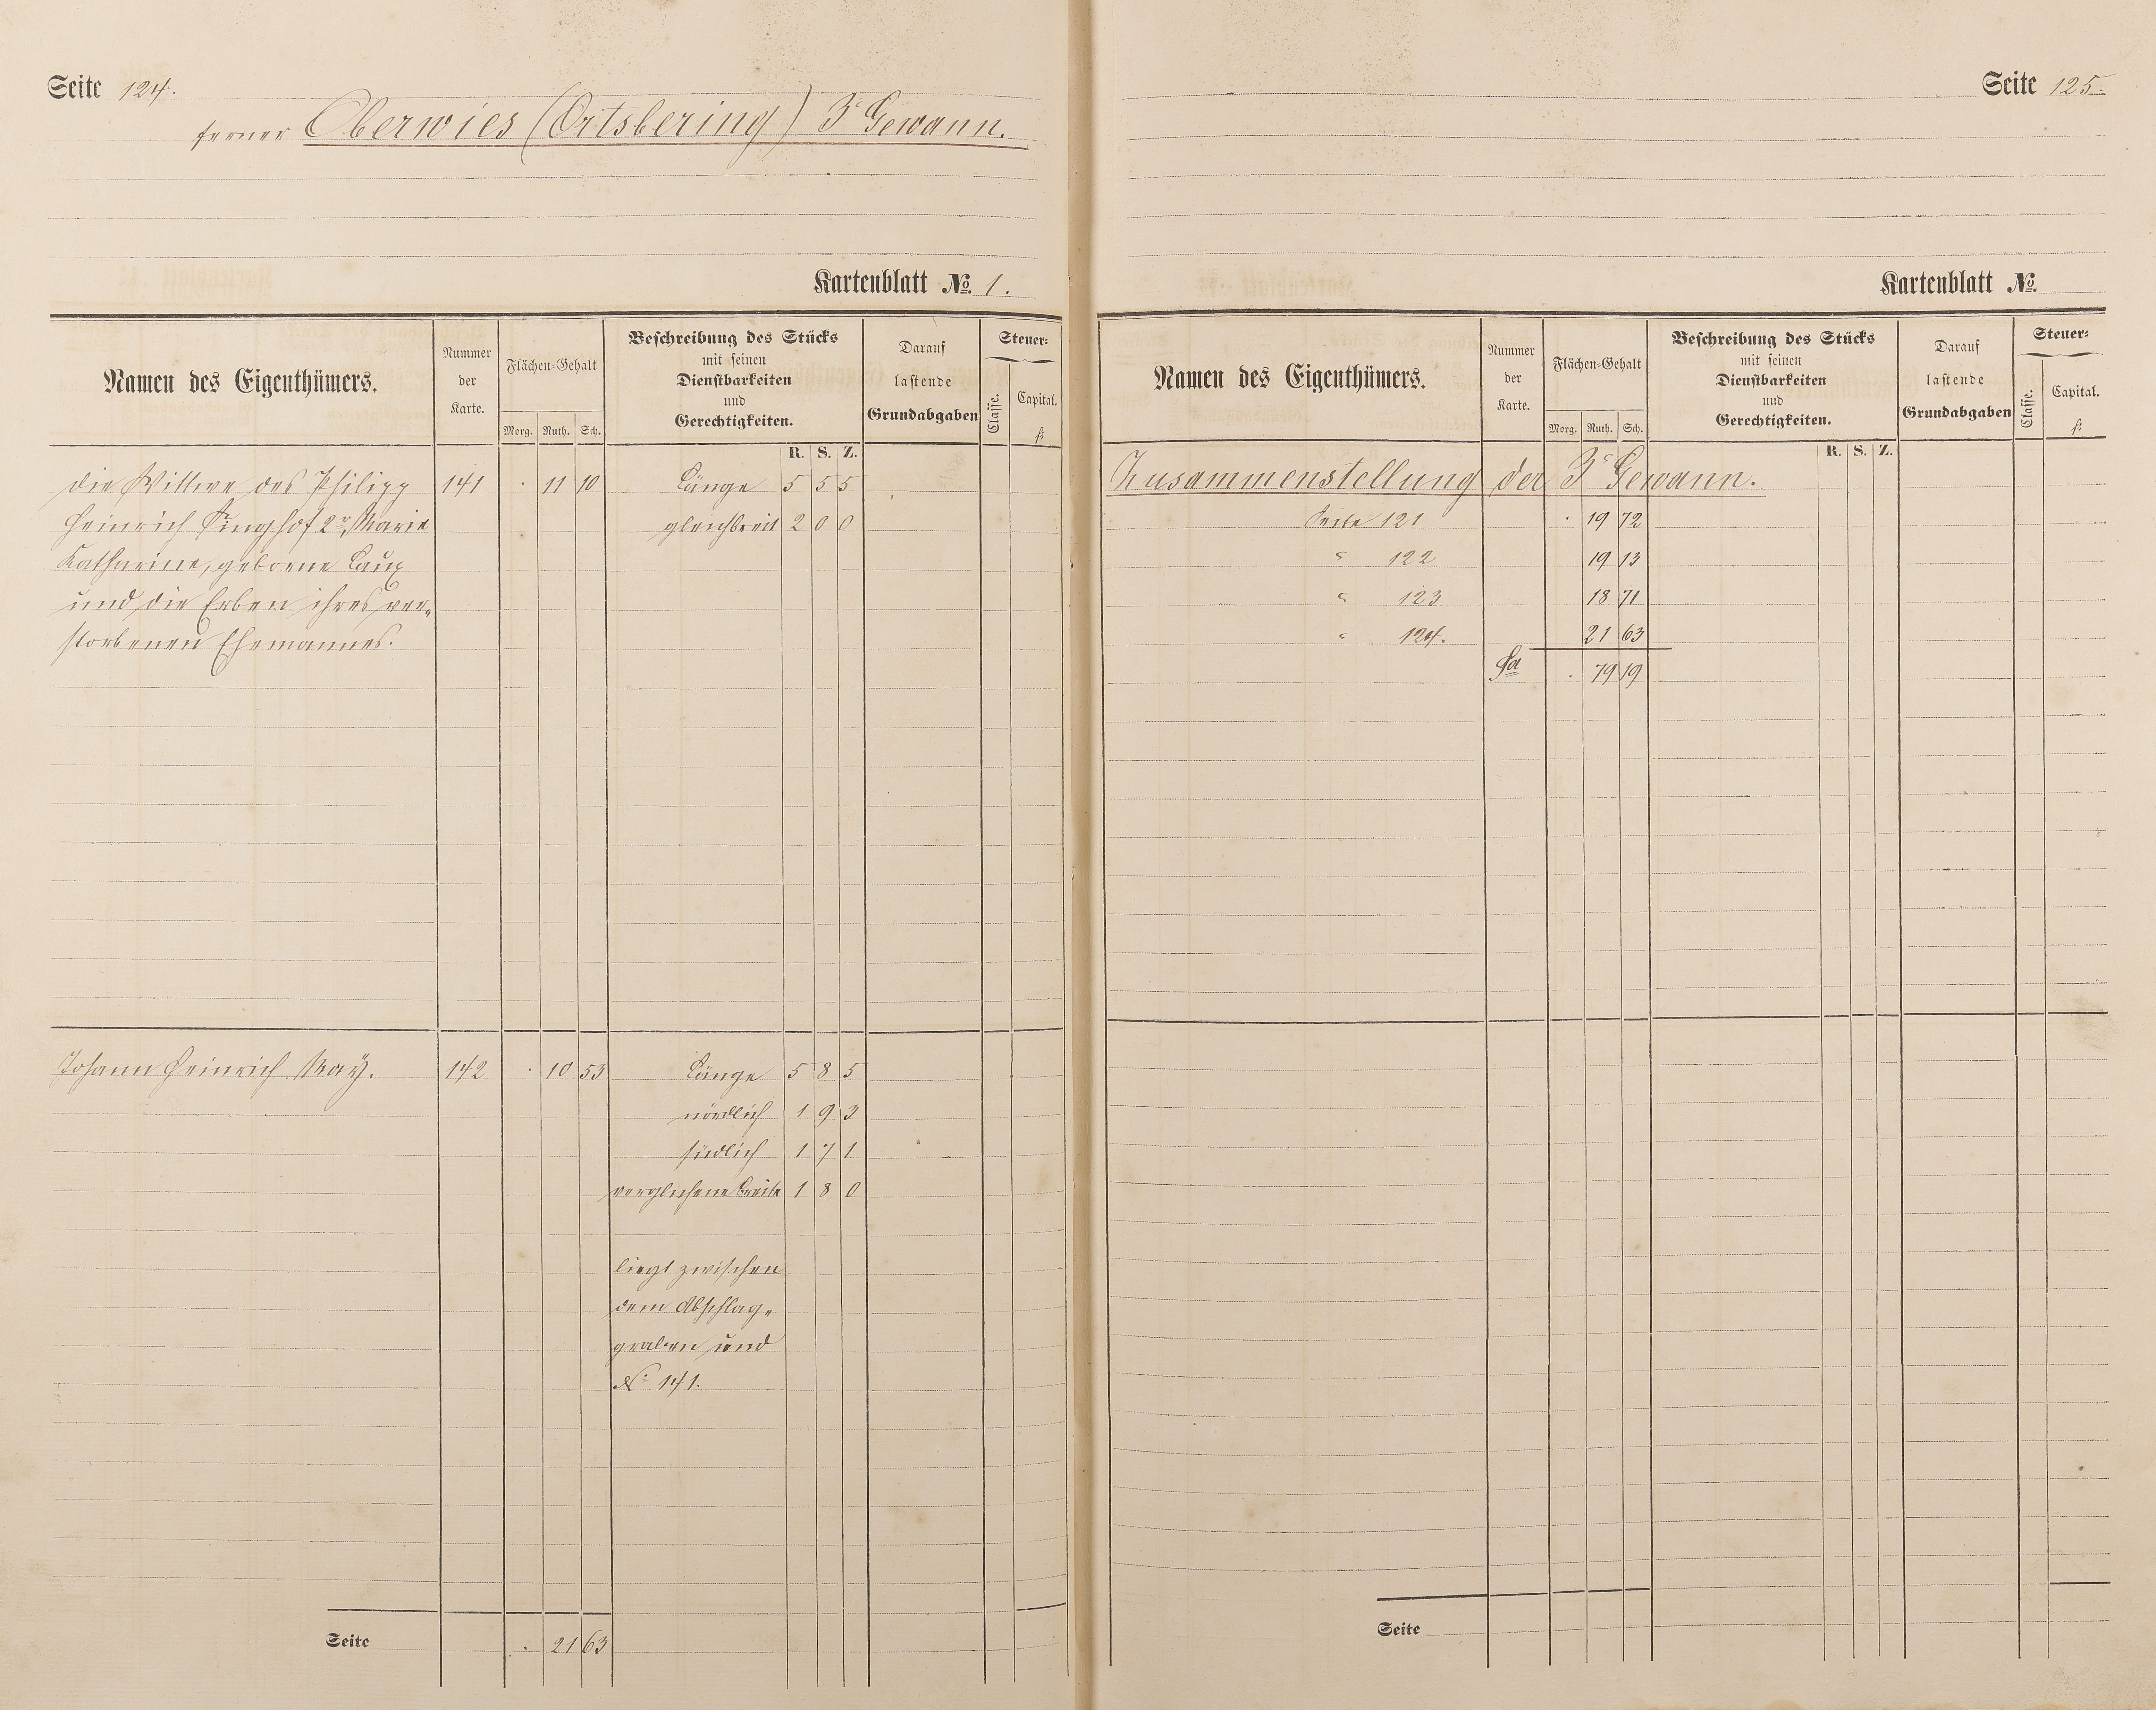 Seite 124.
ferner Oberwies (Ortsbering) 3te Gewann.
Kartenblatt No. 1.
Namen des Eigenthümers.
Nummer der Karte.
Flächen-Gehalt
Morg. Ruth. Sch.
Beschreibung des Stücks
mit seinen
Dienstbarkeiten
und
Gerechtigkeiten.
Darauf
lastende
Grundabgaben
Steuer-
Classe. Capital.
fl
R. S. Z.
die Wittwe des Philipp 141 . 11 10 Länge 5 5 5
Heinrich 2r, Marie gleichbreit 2 0 0
Katharine, geborne Laux
und die Erben ihres ver-
storbenen Ehemannes.
Johann Heinrich May. 142 . 10 53 Länge 5 8 5
nördlich 1 9 3
südlich 1 7 1
verglichene Breite 1 8 0
liegt zwischen
dem Abschlag-
graben und
No 141.
Seite . 21 63
Seite 125.
Kartenblatt No.
Namen des Eigenthümers.
Nummer der Karte.
Flächen-Gehalt
Morg. Ruth. Sch.
Beschreibung des Stücks
mit seinen
Dienstbarkeiten
und
Gerechtigkeiten.
Darauf
lastende
Grundabgaben
Steuer-
Classe. Capital.
fl
R. S. Z.
Zusammenstellung der 3te Gewann.
Seite 121 . 19 72
" 122 19 13
" 123 18 71
" 124. 21 63
Sa . 79 19
Seite